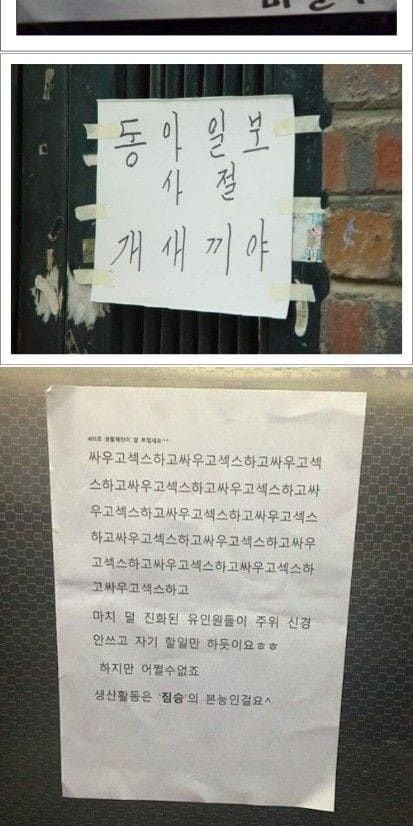 동아일보
사절
개새끼야
405호 생활패턴이 참 부럽네요^^
싸우고섹스하고싸우고섹스하고싸우고섹
스하고싸우고섹스하고싸우고섹스하고싸
우고섹스하고싸우고섹스하고싸우고섹스
하고싸우고섹스하고싸우고섹스하고싸우
고섹스하고싸우고섹스하고싸우고섹스하
고싸우고섹스하고
마치 덜 진화된 유인원들이 주위 신경
안쓰고 자기 할일만 하듯이요ㅎㅎ
하지만 어쩔수없죠
생산활동은 '짐승'의 본능인걸요^